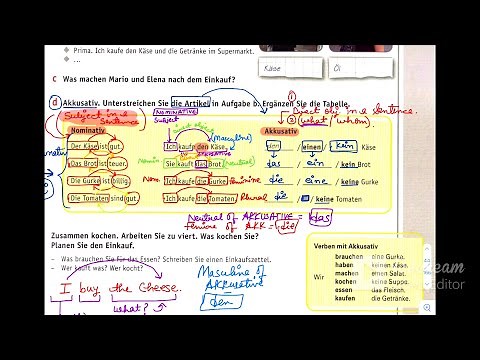 Prima. Ich kaufe den Käse und die Getränke im Supermarkt.
Käse
Öl
c Was machen Mario und Elena nach dem Einkauf?
d Akkusativ. Unterstreichen Sie die Artikel in Aufgabe b. Ergänzen Sie die Tabelle.
Subject in a Sentence
NOMINATIVE
Subject
① Direct obj in a sentence.
② (what / whom)
Nominativ
Akkusativ
Der Käse ist gut.
Ich kaufe den Käse.
(Masculine)
den / einen / kein Käse
AKKUSATIVE
Das Brot ist teuer.
Nomin
Sie kauft das Brot.
(Neutral)
das / ein / kein Brot
Die Gurke ist billig.
Nom.
Ich kaufe die Gurke.
Feminine
die / eine / keine Gurke
Die Tomaten sind gut.
Ich kaufe die Tomaten.
Plural
die / keine Tomaten
Neutral of AKKUSATIVE = das
Femine of AKK = die
Zusammen kochen. Arbeiten Sie zu viert. Was kochen Sie?
Planen Sie den Einkauf.
– Was brauchen Sie für das Essen? Schreiben Sie einen Einkaufszettel.
– Wer kauft was? Wer kocht?
Masculine of
AKKusative
den
I buy the cheese.
what?
Verben mit Akkusativ
Wir
brauchen eine Gurke.
haben keinen Käse.
machen einen Salat.
kochen keine Suppe.
essen das Fleisch.
kaufen die Getränke.